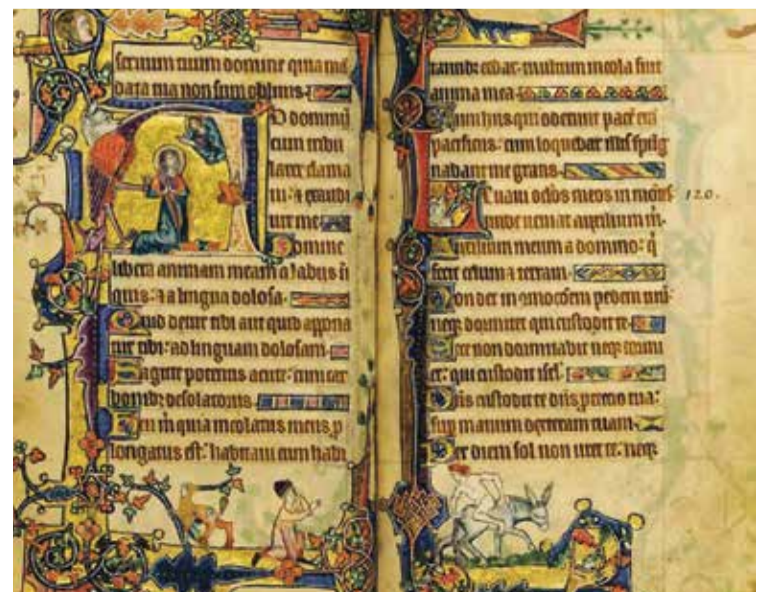 seruum tuum domine quia man
data tua non sum oblitus:
Ad dominũ
cum tribu
larer clama
ui: ⁊ exaudi
uit me
Domine
libera animam meam a labiis ĩi
quis: ⁊ a lingua dolosa.
Quid detur tibi aut quid appona
tur tibi: ad linguam dolosam
Sagitte potentis acute: cum car
bonibꝫ desolatoriis
Heu m̃ quia incolatus meus ꝓ
longatus est: habitaui cum habi
tantibꝫ cedar: multum incola fuit
anima mea
Cum hiis qui oderunt pacẽ erã
pacificus: cum loquebar illis ĩpug
nabant me gratis
Leuaui oclos meos in mõtes 120.
unde ueniat auxilium m̃.
Auxilium meum a domino: q̃
fecit celum ⁊ terram.
Non det in pedem tuũ:
neqꝫ dormitet qui custodit te
Ecce non dormitabit neqꝫ dormi
et: qui custodit isrl̃
Dñs custodit te dñs ꝓtectio tua:
suꝑ manum dexteram tuam
Per diem sol non uret te: neqꝫ